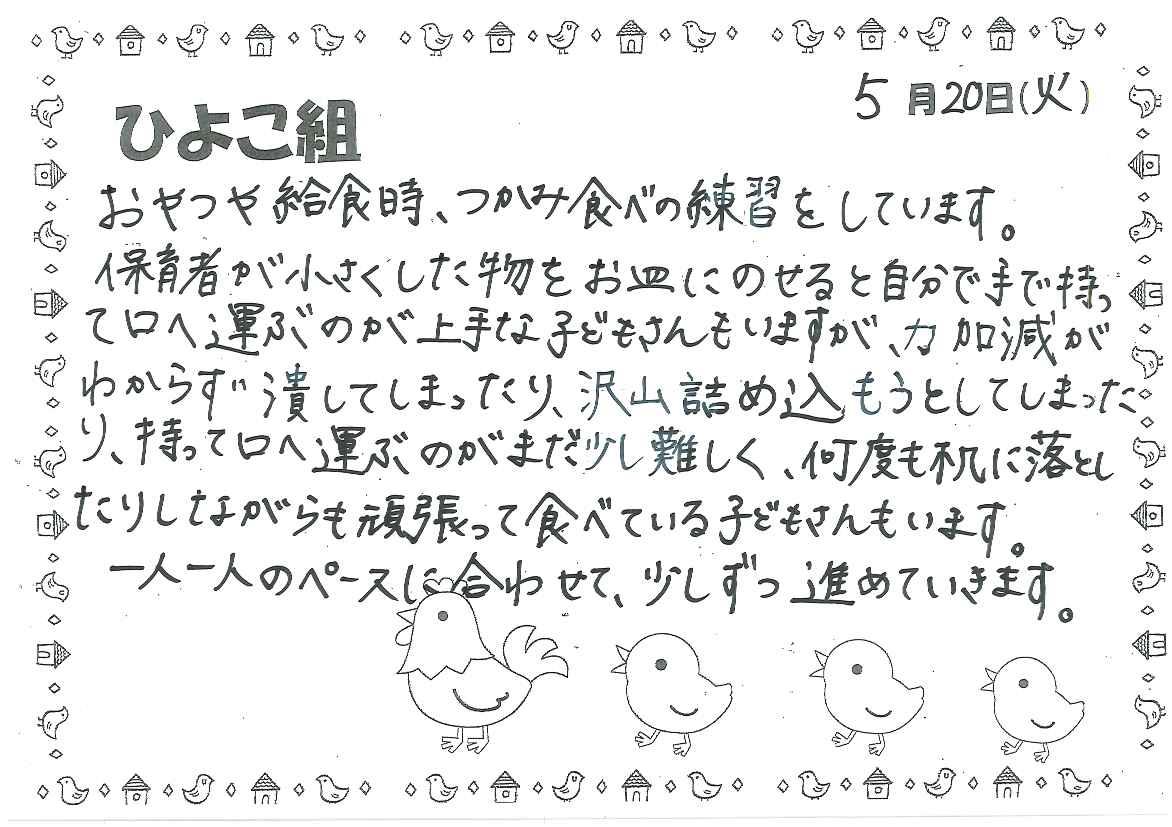 5月20日(火)
ひよこ組
おやつや給食時、つかみ食べの練習をしています。
保育者が小さくした物をお皿にのせると自分で手で持っ
て口へ運ぶのが上手な子どもさんもいますが、力加減が
わからず潰してしまったり、沢山詰め込もうとしてしまった
り、持って口へ運ぶのがまだ少し難しく、何度も机に落とし
たりしながらも頑張って食べている子どもさんもいます。
一人一人のペースに合わせて、少しずつ進めていきます。